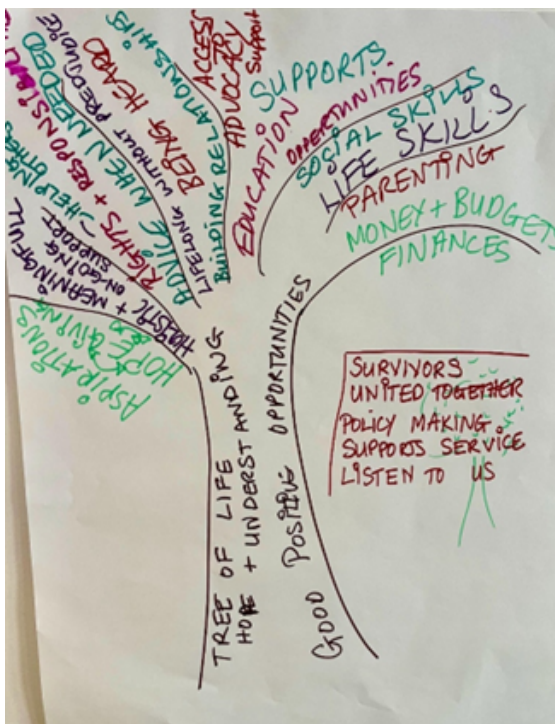 ASPIRATIONS
HOPE GIVING
HOLISTIC + MEANINGFUL
ON-GOING SUPPORT
HELPING OTHERS
ADVICE WHEN NEEDED
RIGHTS +
LIFELONG WITHOUT PREDGUDICE
BEING HEARD
BUILDING RELATIONSHIPS
ACCESS
TO
ADVOCACY
Support
EDUCATION
SUPPORTS
OPPERTUNITIES
SOCIAL SKILLS
LIFE SKILLS
PARENTING
MONEY + BUDGET
FINANCES
TREE OF LIFE
HOPE + UNDERSTANDING
GOOD POSITIVE OPPORTUNITIES
SURVIVORS
UNITED TOGETHER
POLICY MAKING
SUPPORTS SERVICE
LISTEN TO US